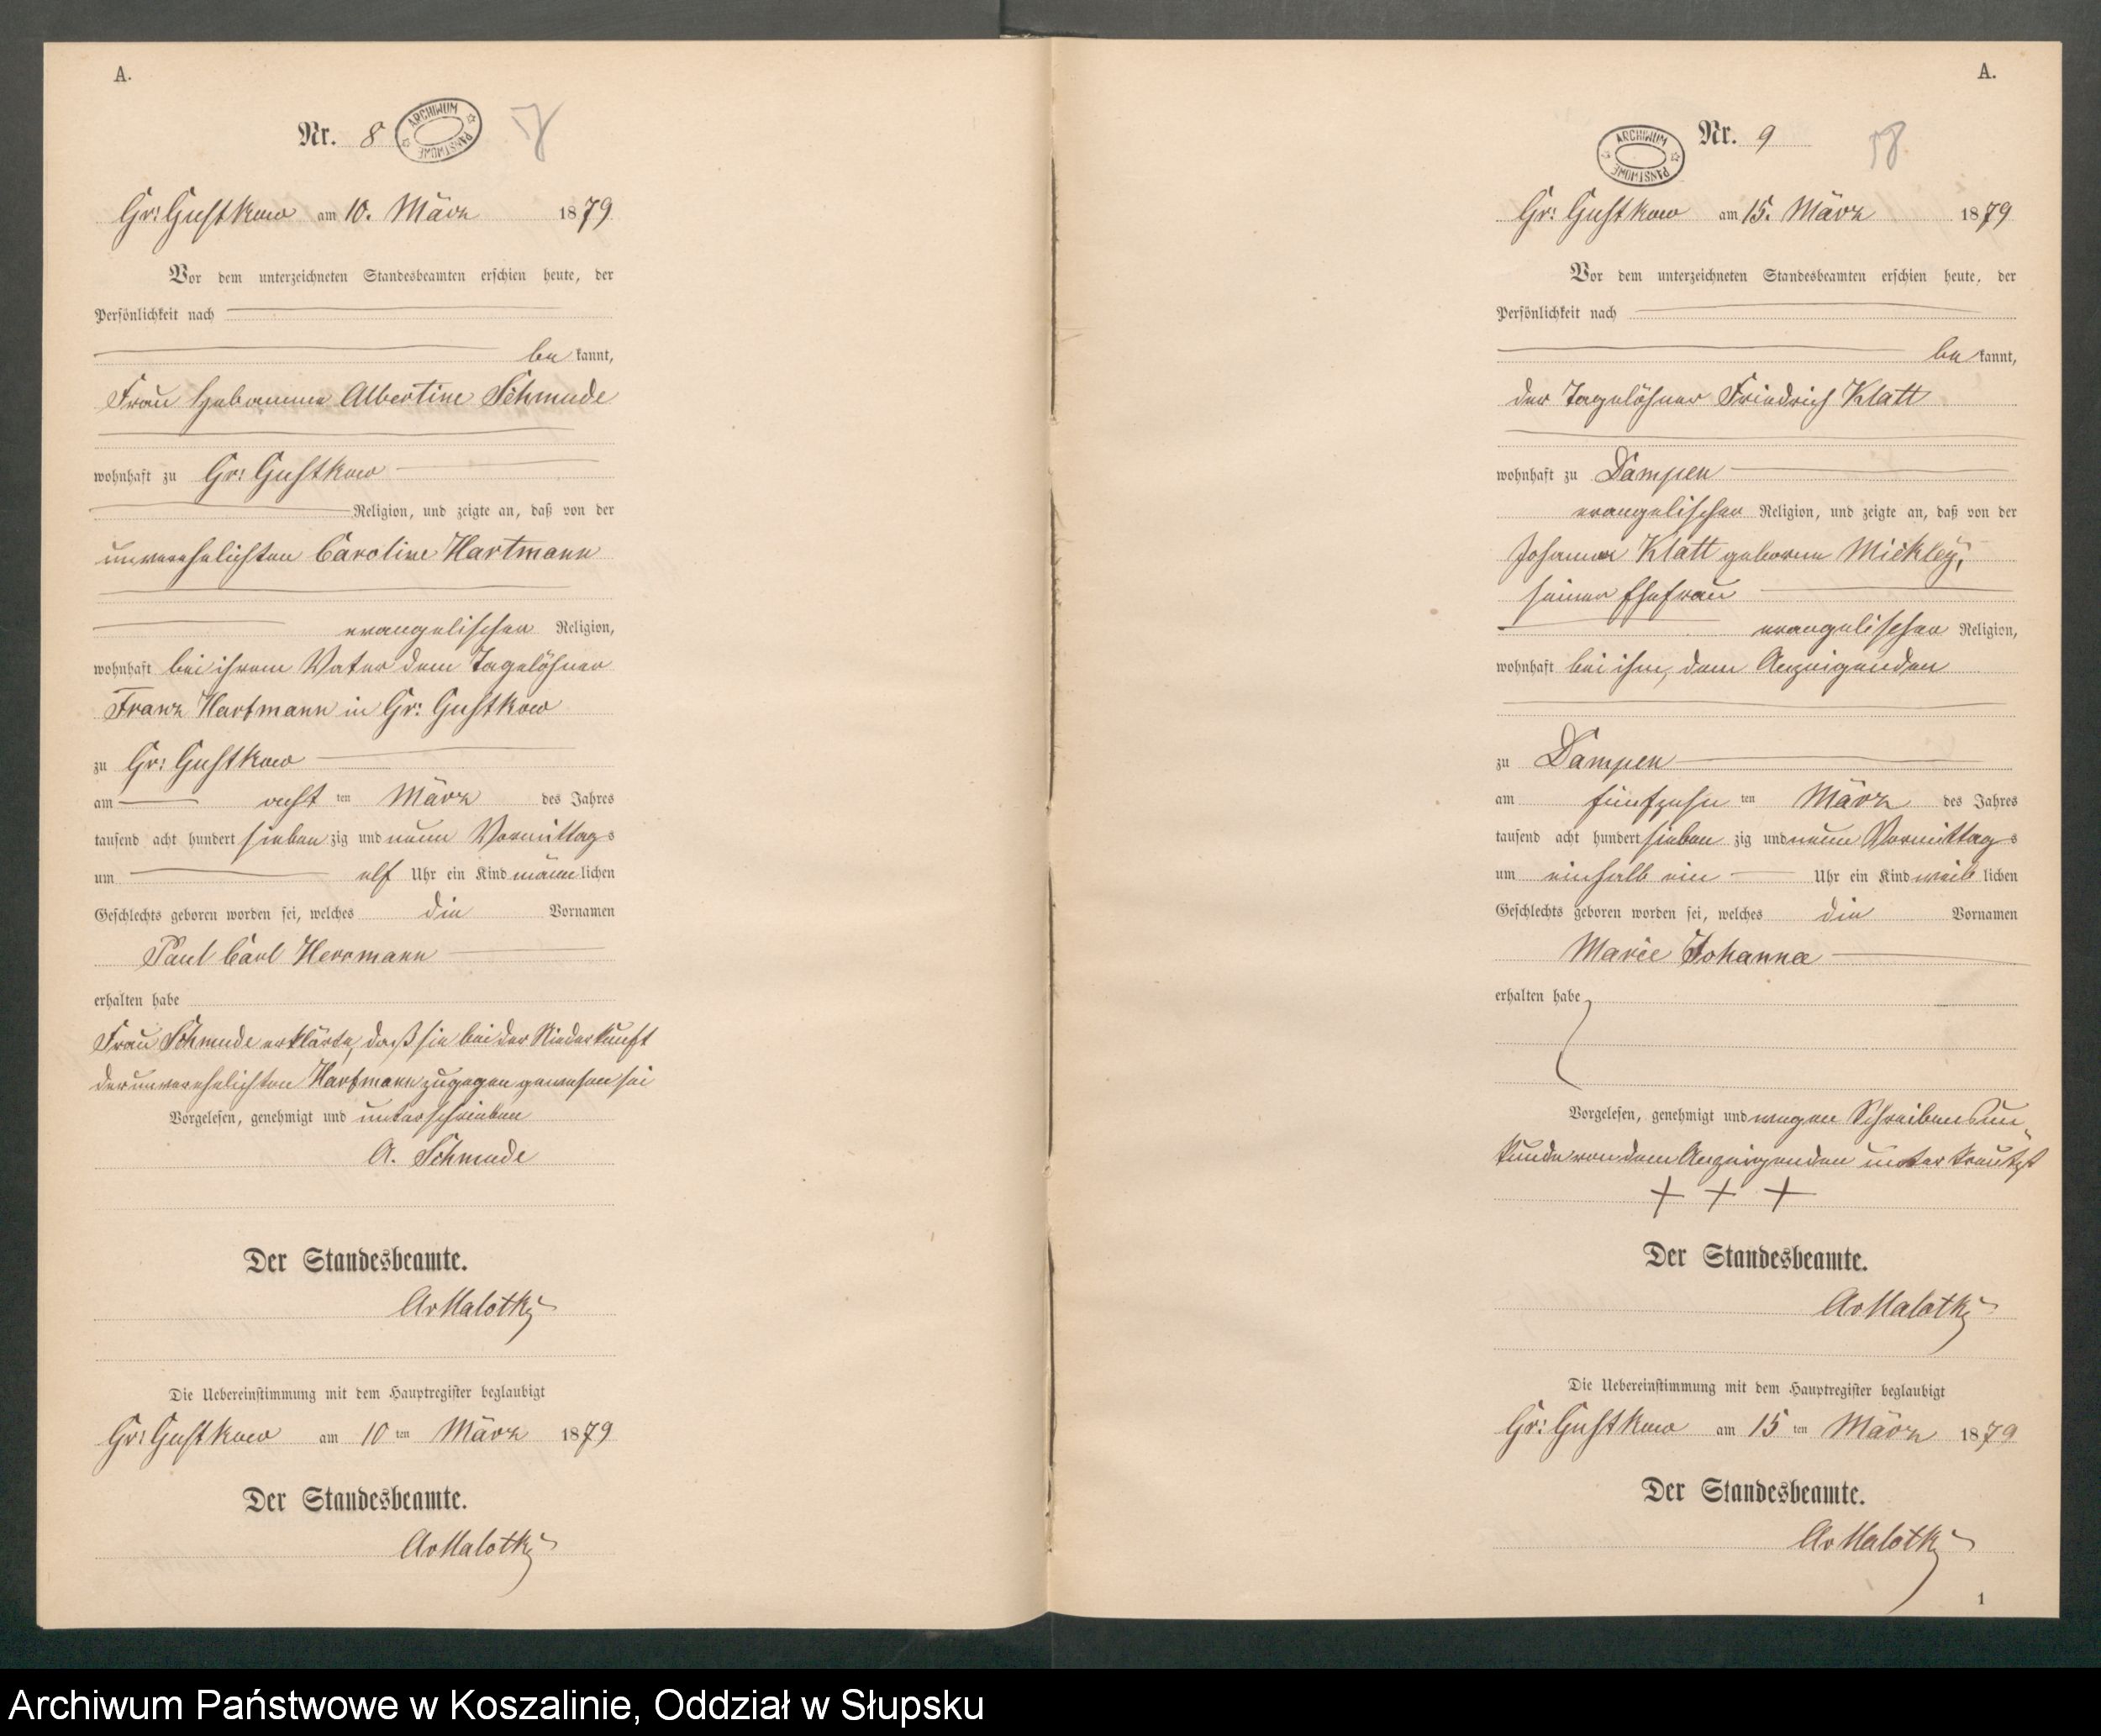 A.
Nr. 8
ARCHIWUM PAŃSTWOWE
57
Gr: Gustkow am 10. März 1879
Vor dem unterzeichneten Standesbeamten erschien heute, der
Persönlichkeit nach
be kannt,
Frau Hebamme Albertine Schmude
wohnhaft zu Gr: Gustkow
Religion, und zeigte an, daß von der
unverehelichten Caroline Hartmann
evangelischer Religion,
wohnhaft bei ihrem Vater dem Tagelöhner
Franz Hartmann in Gr: Gustkow
zu Gr: Gustkow
am acht ten März des Jahres
tausend acht hundert sieben zig und neun Vormittags
um elf Uhr ein Kind männ lichen
Geschlechts geboren worden sei, welches die Vornamen
Paul Carl Herrmann
erhalten habe
Frau Schmude erklärte, daß sie bei der Niederkunft
der unverehelichten Hartmann zugegen gewesen sei
Vorgelesen, genehmigt und unterschrieben
A. Schmude
Der Standesbeamte.
AvMalotky
Die Uebereinstimmung mit dem Hauptregister beglaubigt
Gr: Gustkow am 10 ten März 1879
Der Standesbeamte.
AvMalotky
A.
ARCHIWUM PAŃSTWOWE
Nr. 9
58
Gr: Gustkow am 15. März 1879
Vor dem unterzeichneten Standesbeamten erschien heute, der
Persönlichkeit nach
be kannt,
der Tagelöhner Friedrich Klatt
wohnhaft zu Dampen
evangelischer Religion, und zeigte an, daß von der
Johanne Klatt geborne Mickley,
seiner Ehefrau
evangelischer Religion,
wohnhaft bei ihm, dem Anzeigenden
zu Dampen
am fünfzehn ten März des Jahres
tausend acht hundert sieben zig und neun Vormittags
um einhalb ein Uhr ein Kind weib lichen
Geschlechts geboren worden sei, welches die Vornamen
Marie Johanna
erhalten habe
Vorgelesen, genehmigt und wegen Schreibensun-
kunde von dem Anzeigenden unterkreutzt
+ + +
Der Standesbeamte.
AvMalotky
Die Uebereinstimmung mit dem Hauptregister beglaubigt
Gr: Gustkow am 15 ten März 1879
Der Standesbeamte.
AvMalotky
1
Archiwum Państwowe w Koszalinie, Oddział w Słupsku